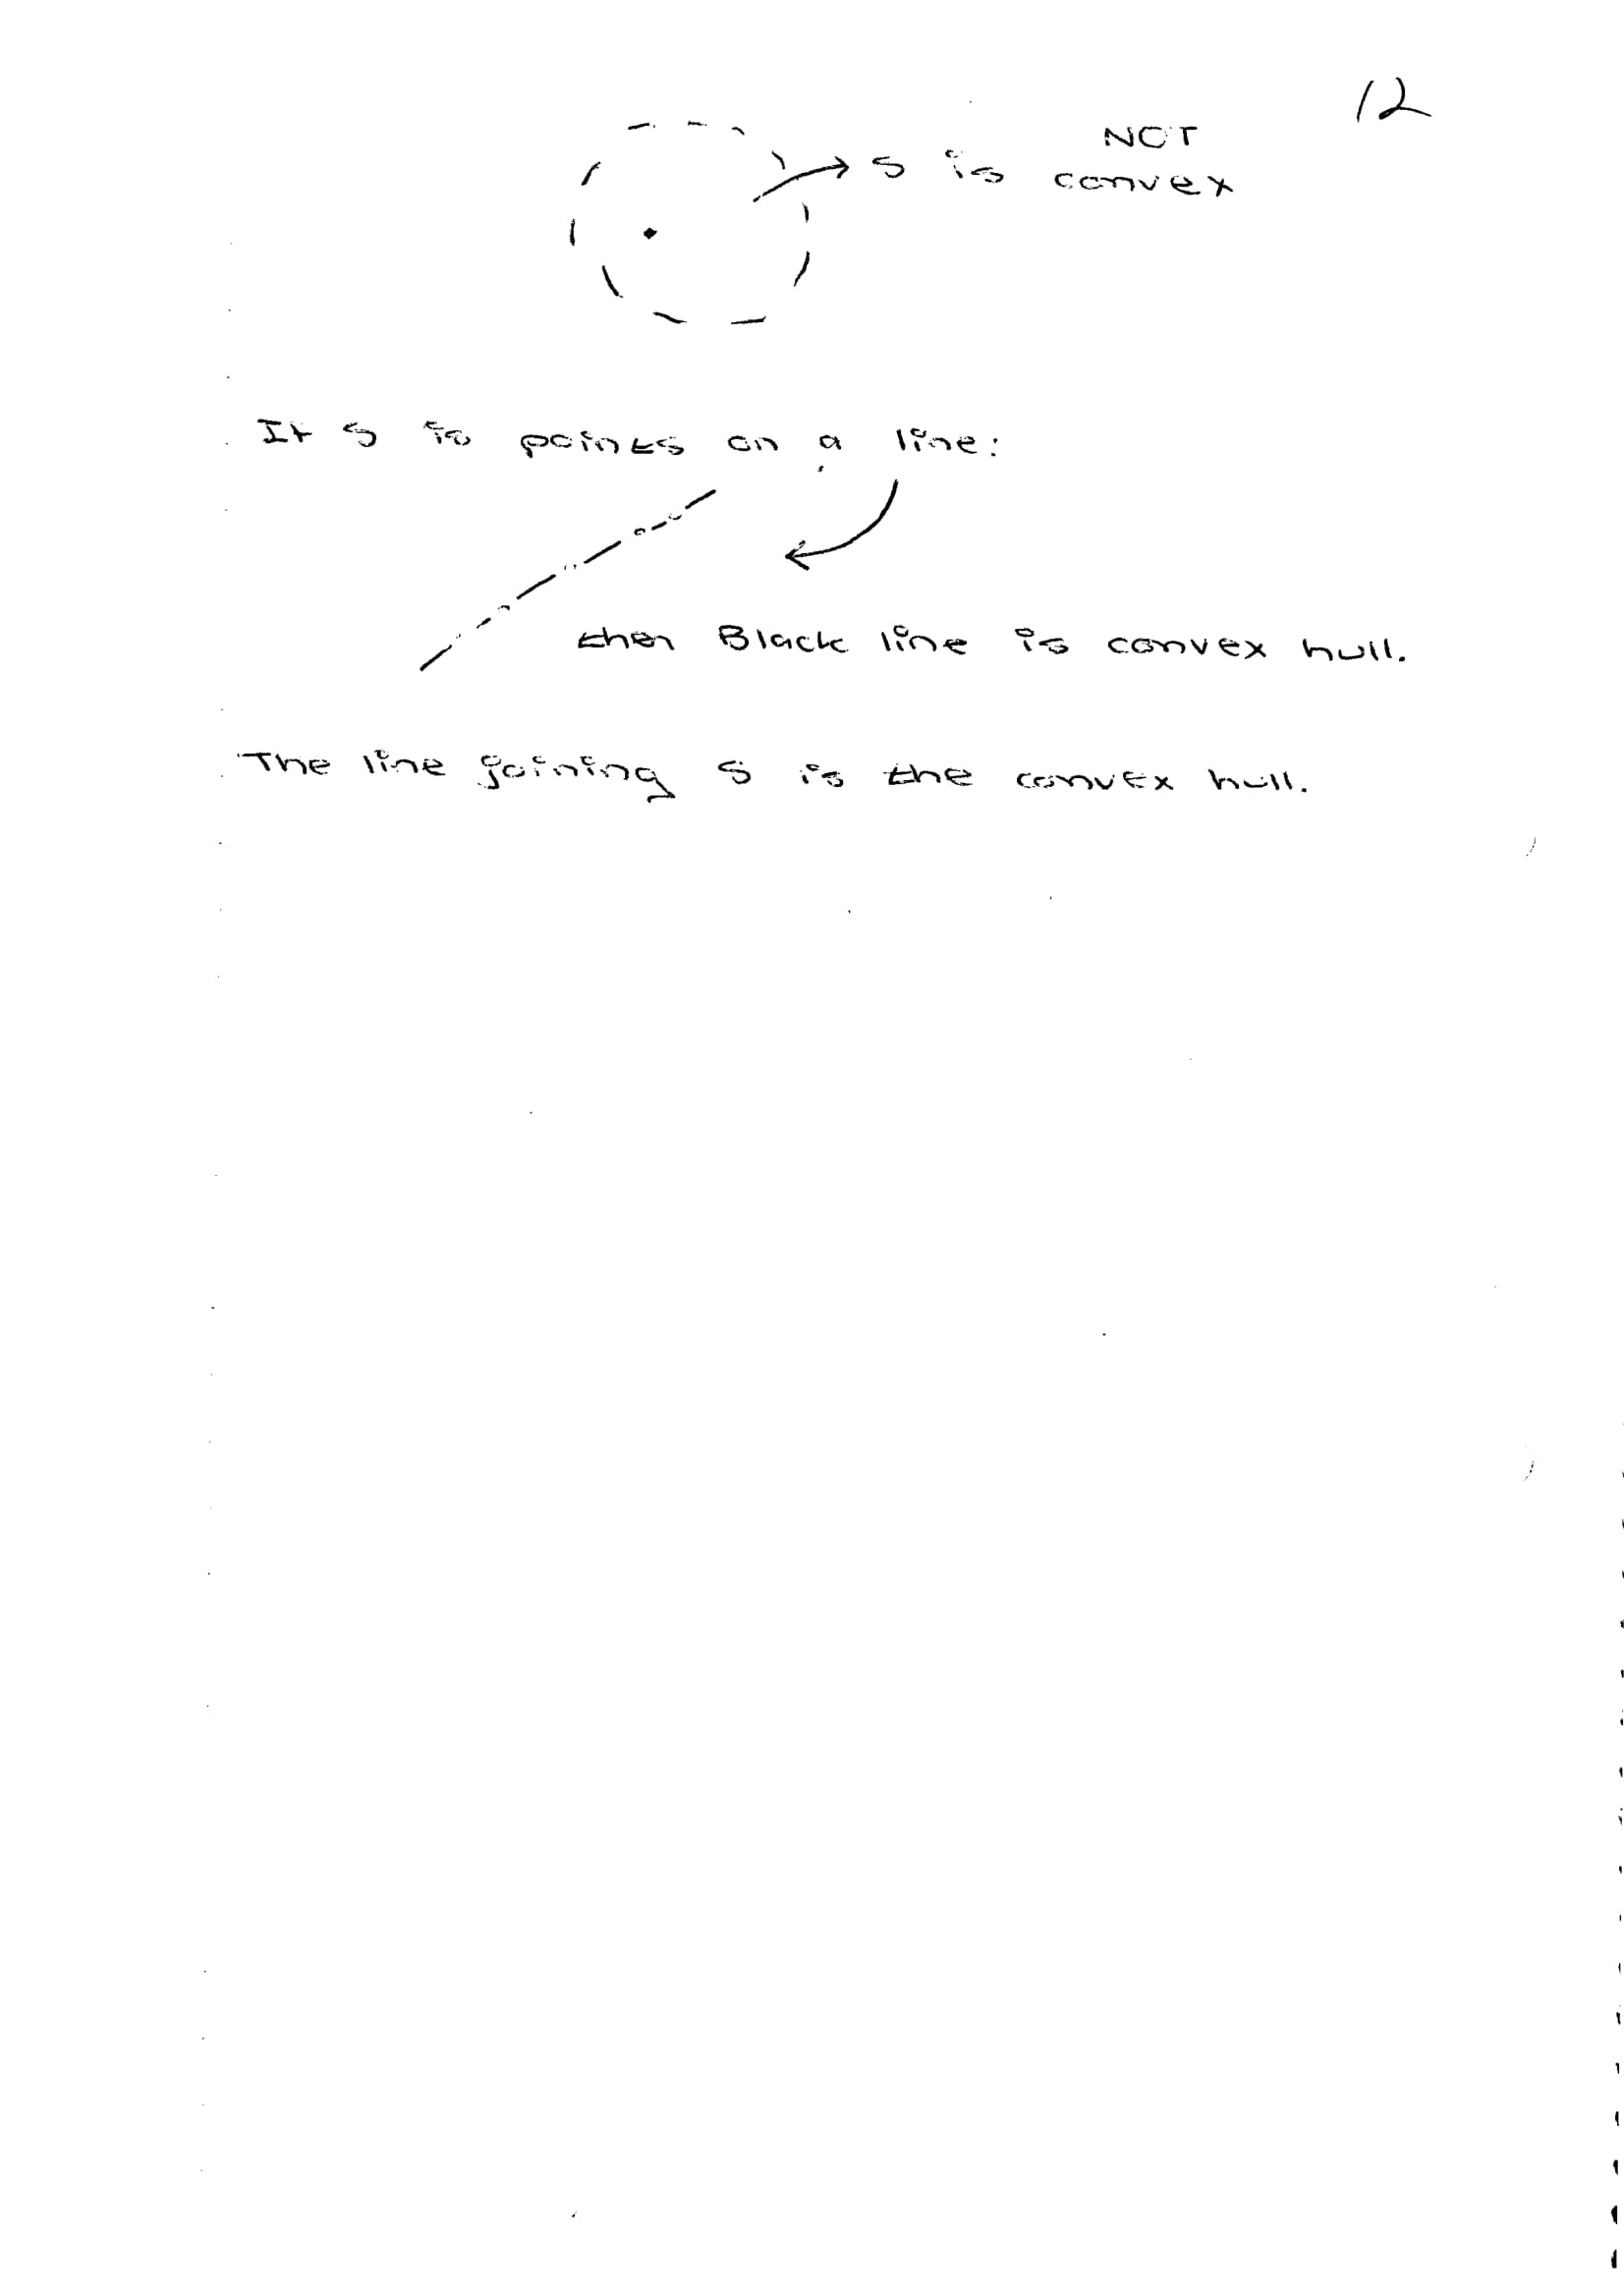 12
NOT
S is convex
If S is points on a line:
then Black line is convex hull.
The line joining S is the convex hull.